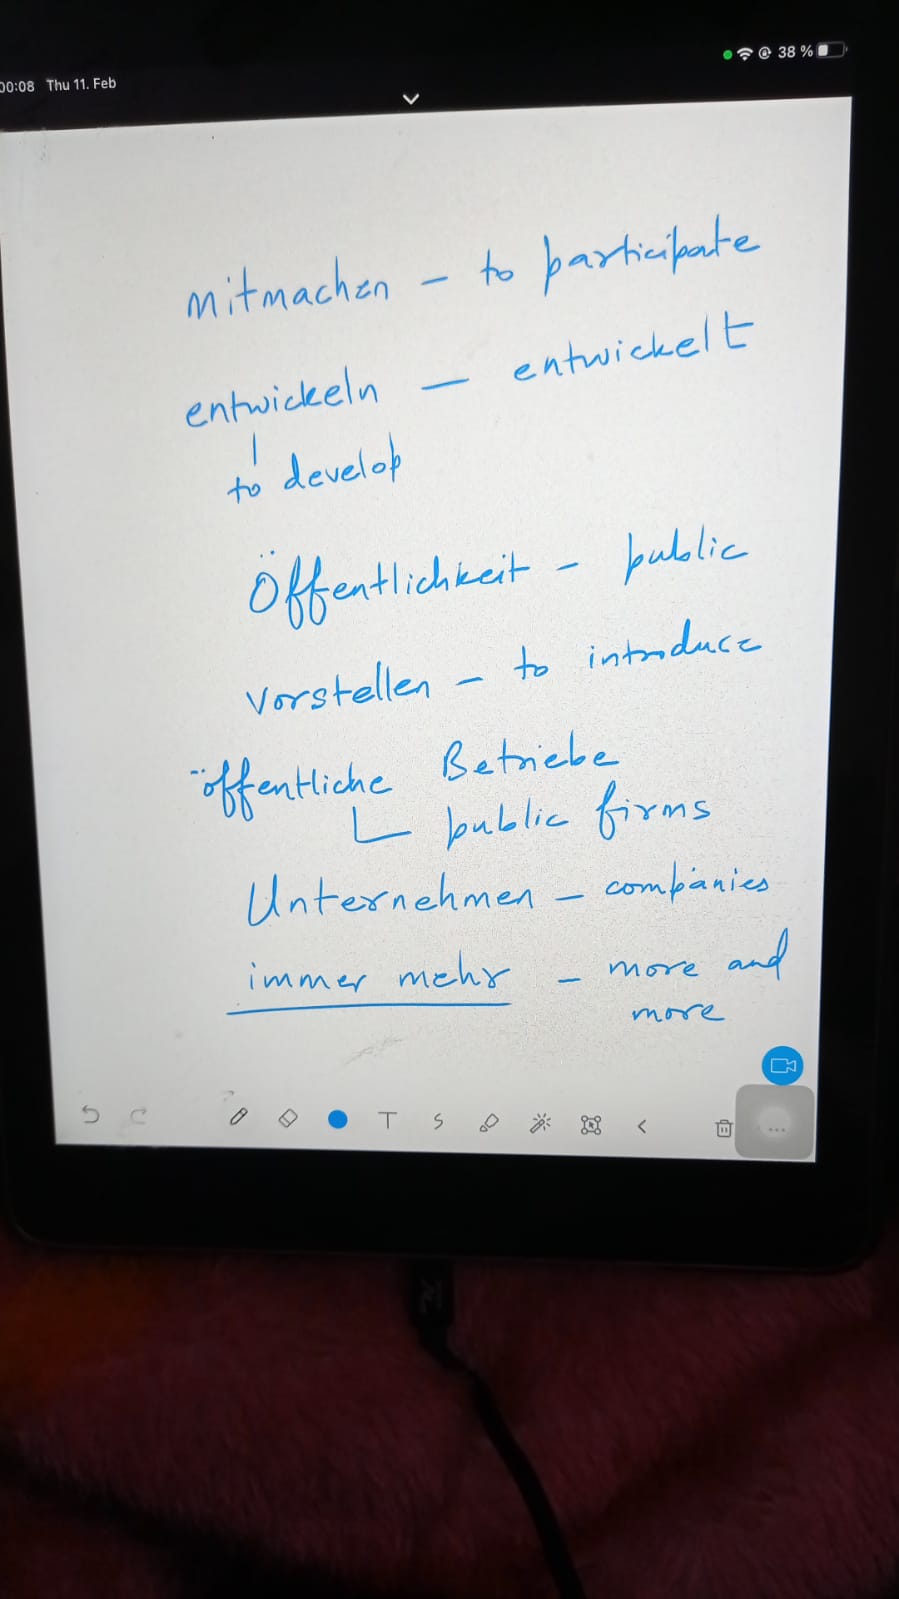 00:08 Thu 11. Feb
38 %
mitmachen - to participate
entwickeln - entwickelt
to develop
Öffentlichkeit - public
Vorstellen - to introduce
öffentliche Betriebe
public firms
Unternehmen - companies
immer mehr - more and
more
T